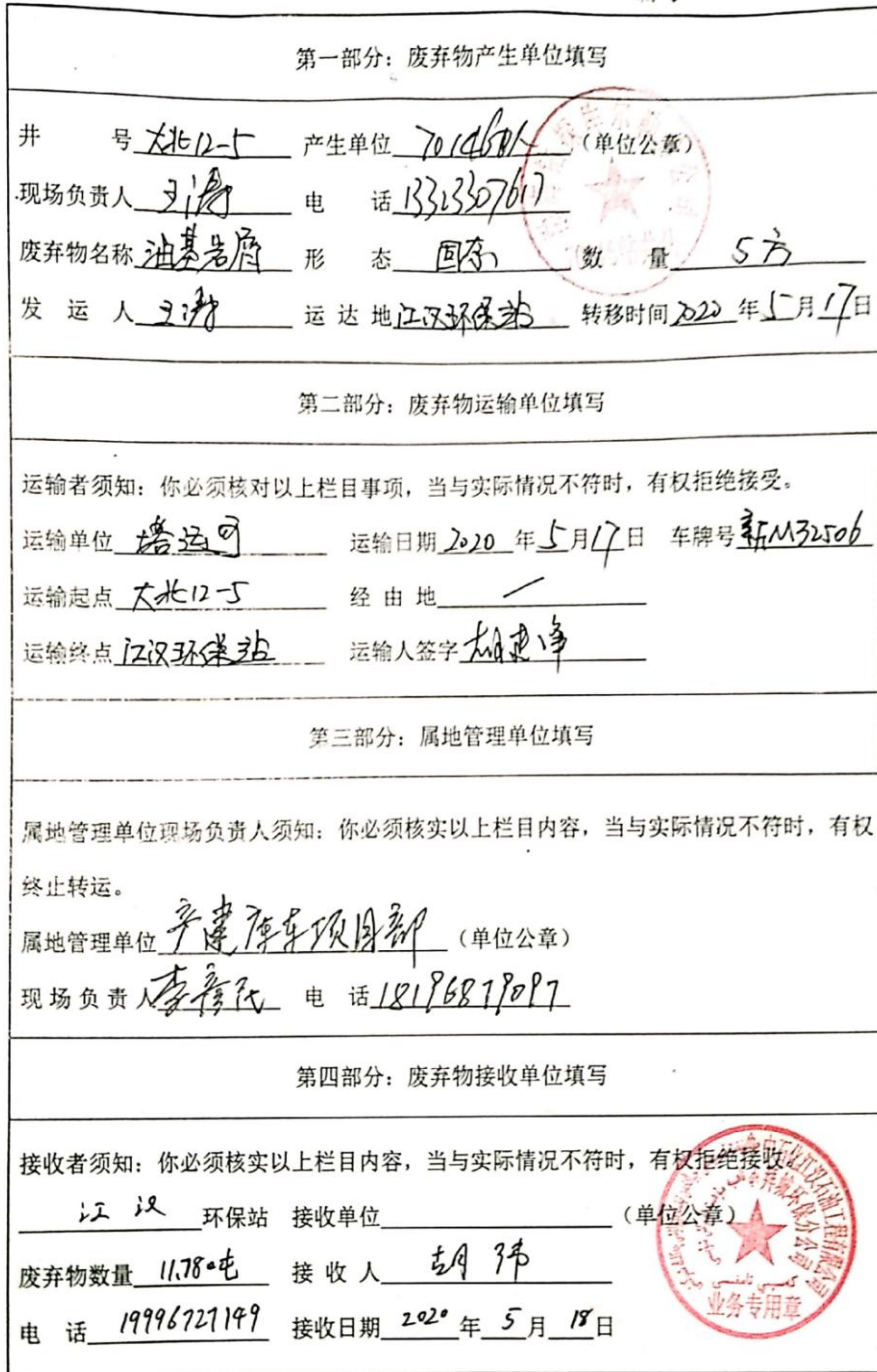 第一部分：废弃物产生单位填写
井 号 大北12-5 产生单位 70146队 （单位公章）
现场负责人 王涛 电 话 13323307617
废弃物名称 油基岩屑 形 态 固态 数 量 5方
发 运 人 王涛 运 达 地 江汉环保站 转移时间 2020 年 5 月 17 日
第二部分：废弃物运输单位填写
运输者须知：你必须核对以上栏目事项，当与实际情况不符时，有权拒绝接受。
运输单位 塔运司 运输日期 2020 年 5 月 17 日 车牌号 新M32506
运输起点 大北12-5 经 由 地 /
运输终点 江汉环保站 运输人签字 胡建峰
第三部分：属地管理单位填写
属地管理单位现场负责人须知：你必须核实以上栏目内容，当与实际情况不符时，有权
终止转运。
属地管理单位 产建库车项目部 （单位公章）
现场负责人 李彦 电 话 18196879097
第四部分：废弃物接收单位填写
接收者须知：你必须核实以上栏目内容，当与实际情况不符时，有权拒绝接收。
江汉 环保站 接收单位 （单位公章）
废弃物数量 11.780吨 接 收 人 胡玮
电 话 19996727149 接收日期 2020 年 5 月 18 日
中石化江汉石油工程有限公司
环保分公司
业务专用章